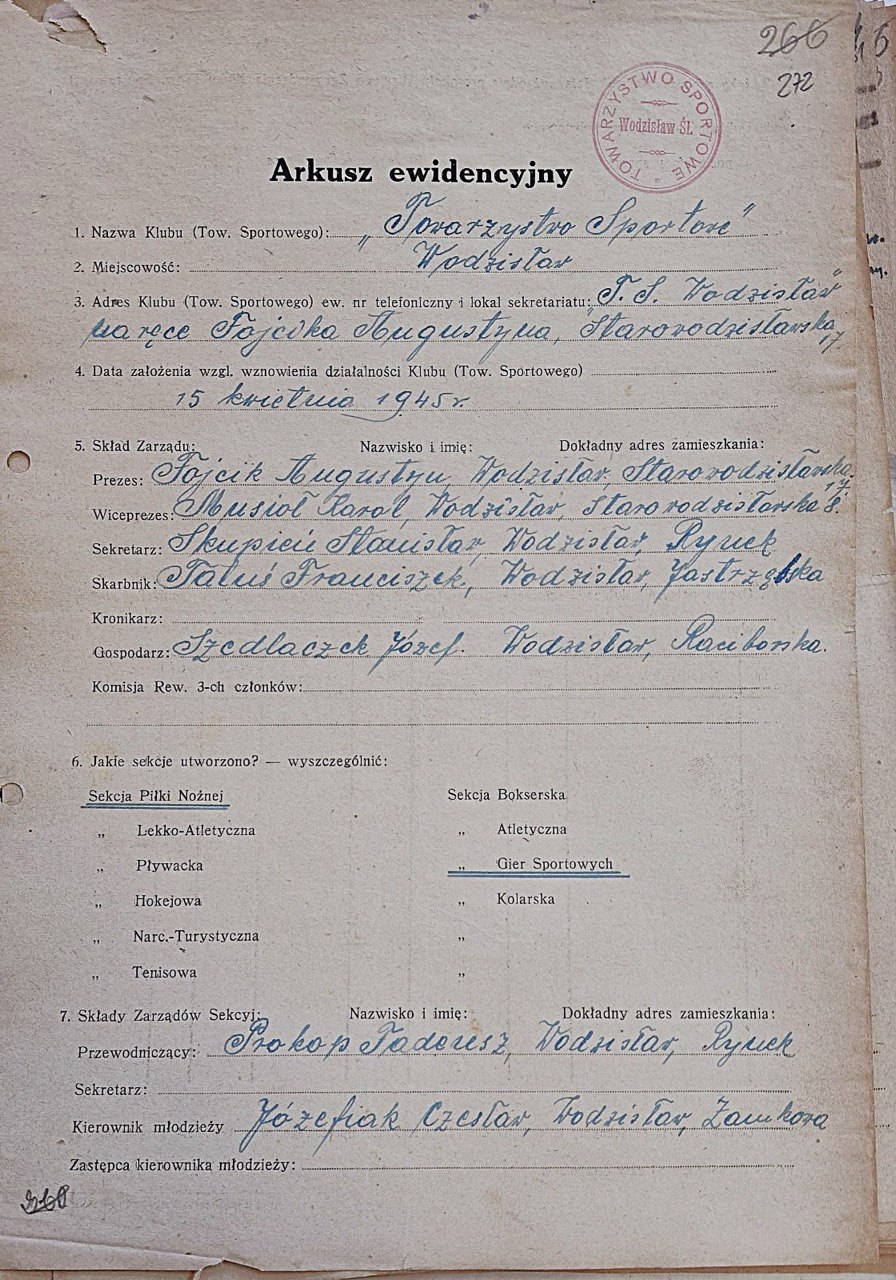 266
272
TOWARZYSTWO SPORTOWE
Wodzisław Śl.
Arkusz ewidencyjny
1. Nazwa Klubu (Tow. Sportowego): „Towarzystwo Sportowe"
2. Miejscowość: Wodzisław
3. Adres Klubu (Tow. Sportowego) ew. nr telefoniczny i lokal sekretariatu: T. S. Wodzisław
na ręce Fojcika Augustyna, Starowodzisławska 17.
4. Data założenia wzgl. wznowienia działalności Klubu (Tow. Sportowego)
15 kwietnia 1945 r.
5. Skład Zarządu: Nazwisko i imię: Dokładny adres zamieszkania:
Prezes: Fojcik Augustyn, Wodzisław, Starowodzisławska 17.
Wiceprezes: Musioł Karol, Wodzisław, Starowodzisławska 8.
Sekretarz: Skupień Stanisław, Wodzisław, Rynek
Skarbnik: Tatuś Franciszek, Wodzisław, Jastrzębska
Kronikarz:
Gospodarz: Szedlaczek Józef. Wodzisław, Raciborska.
Komisja Rew. 3-ch członków:
6. Jakie sekcje utworzono? — wyszczególnić:
Sekcja Piłki Nożnej Sekcja Bokserska
„ Lekko-Atletyczna „ Atletyczna
„ Pływacka „ Gier Sportowych
„ Hokejowa „ Kolarska
„ Narc.-Turystyczna „
„ Tenisowa „
7. Składy Zarządów Sekcyj: Nazwisko i imię: Dokładny adres zamieszkania:
Przewodniczący: Prokop Tadeusz, Wodzisław, Rynek
Sekretarz:
Kierownik młodzieży Józefiak Czesław, Wodzisław, Zamkowa
Zastępca kierownika młodzieży: